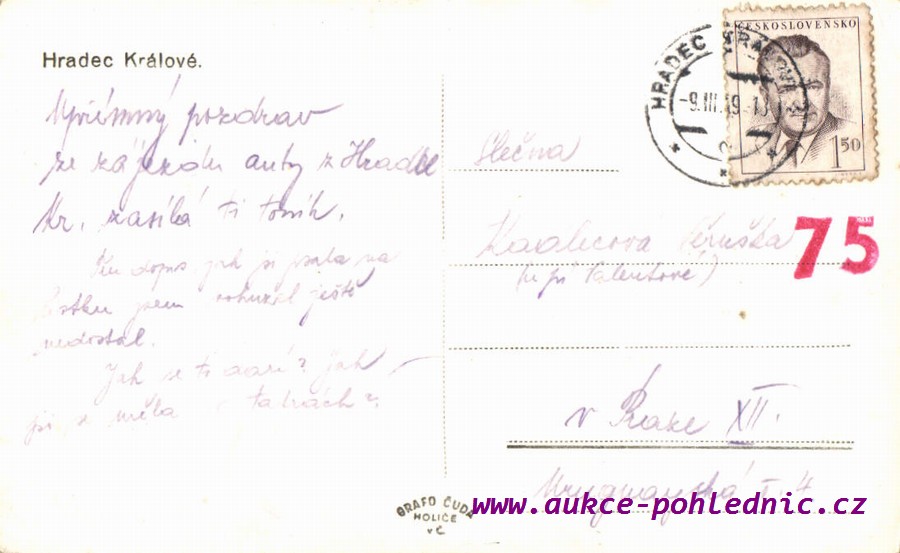 Hradec Králové.
Upřímný pozdrav
ze zájezdu auty z Hradce
Kr. zasílá ti Toník.
Ten dopis jak si psala na
lístku jsem bohužel ještě
nedostal.
Jak se ti daří? Jak
jsi se měla v Tatrách?
ČESKOSLOVENSKO
1 50
HRADEC KRÁLOVÉ
-9.III.49-13
Slečna
Věruška
(u pí Valentové)
75
v Praze XII.
GRAFO ČUDA
HOLICE
v Č
www.aukce-pohlednic.cz